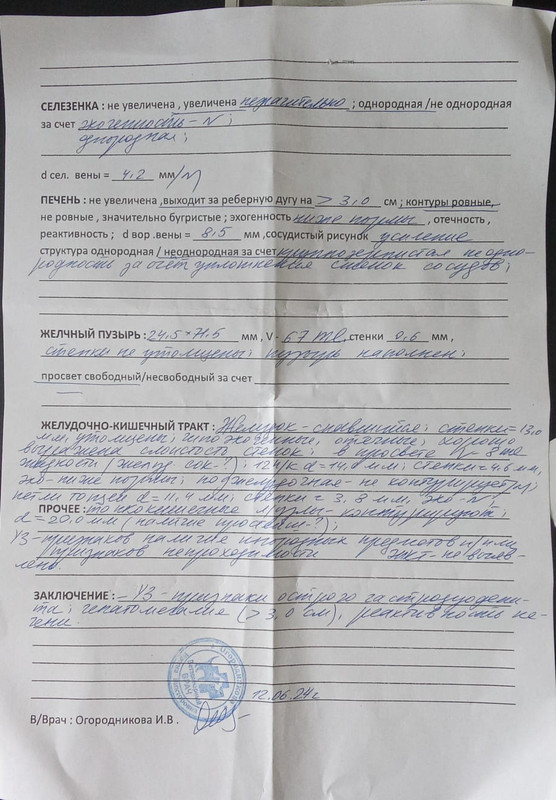 СЕЛЕЗЕНКА : не увеличена , увеличена незначительно ; однородная /не однородная
за счет эхогенность - N ;
однородная ;
d сел. вены = 4,2 мм/N
ПЕЧЕНЬ : не увеличена ,выходит за реберную дугу на > 3,0 см ; контуры ровные,
не ровные , значительно бугристые ; эхогенность ниже нормы , отечность ,
реактивность ; d вор .вены = 8,5 мм ,сосудистый рисунок усиление
структура однородная / неоднородная за счет крупнозернистая неодно-
родность за счёт уплотнения стенок сосудов ;
ЖЕЛЧНЫЙ ПУЗЫРЬ : 24,5 * 71,5 мм , V - 67 ml, стенки 0,6 мм ,
стенки не утолщены ; пузырь наполнен ;
просвет свободный/несвободный за счет
ЖЕЛУДОЧНО-КИШЕЧНЫЙ ТРАКТ : Желудок - спавшийся ; стенки = 13,0
мм, утолщены ; гипоэхогенные, отечные ; хорошо
выражена слоистость стенок ; в просвете
жидкости / желуд. сок - ? ) ; 12п/к d = 14,0 мм ; стенки = 4,6 мм,
эхо - ниже нормы ; поджелудочная - не контурируется ;
петли тощей d = 11,4 мм ; стенки = 3,8 мм, эхо - N ;
ПРОЧЕЕ : тонкокишечные контурируют ;
d = 20,0 мм ( наличие простейш - ? ) ;
УЗ - признаков наличия инородных предметов и/или
признаков непроходимости ЖКТ - не выяв-
лено.
ЗАКЛЮЧЕНИЕ : - УЗ - признаки острого гастродуодени-
та ; гепатомегалия ( > 3,0 см ), реактивность пе-
чени.
12.06.24г
В/Врач : Огородникова И.В .